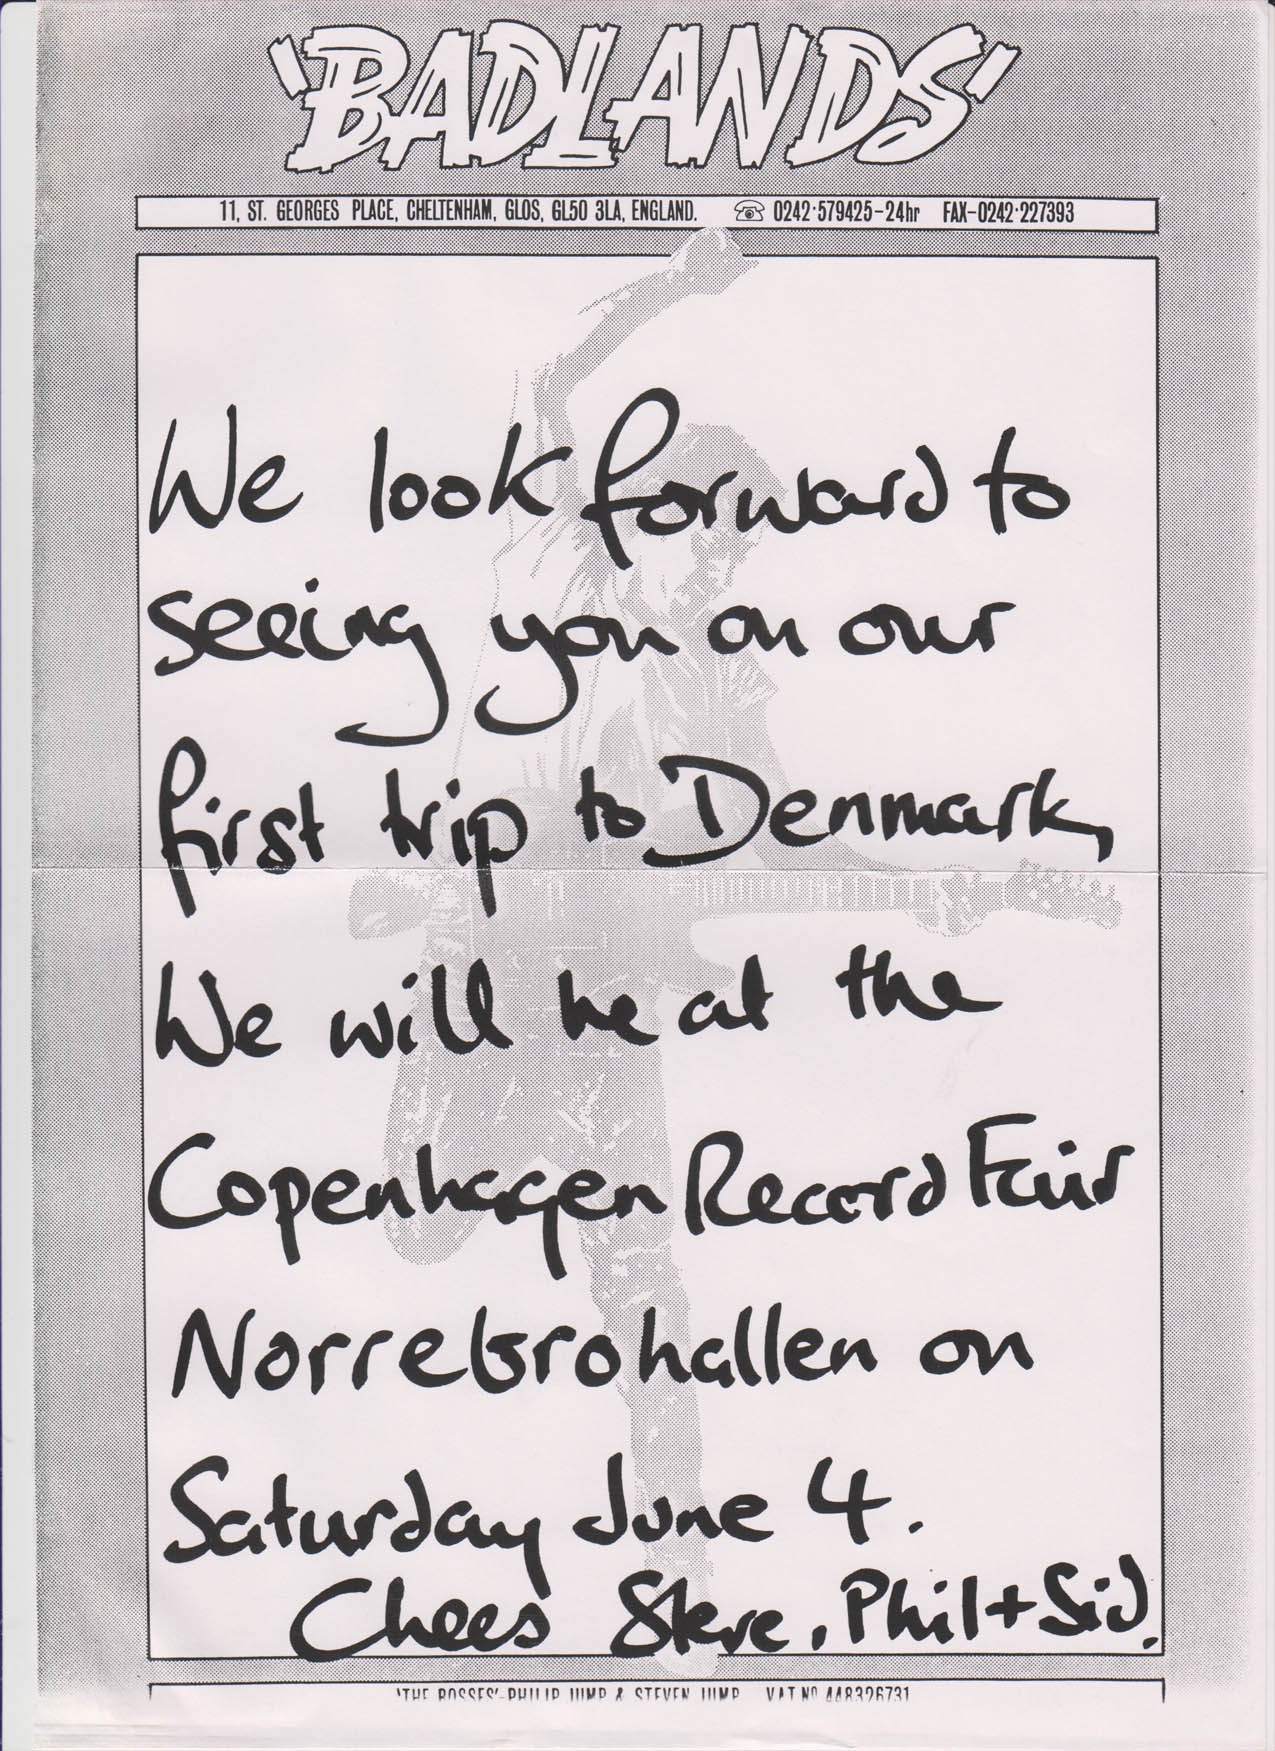 'BADLANDS'
11, ST. GEORGES PLACE, CHELTENHAM, GLOS, GL50 3LA, ENGLAND. ☎ 0242·579425-24hr FAX-0242·227393
We look forward to
seeing you on our
first trip to Denmark,
We will be at the
Copenhagen Record Fair
Norrebrohallen on
Saturday June 4.
Chees Steve, Phil + Sid.
'THE BOSSES'-PHILIP JUMP & STEVEN JUMP VAT NO 448326731